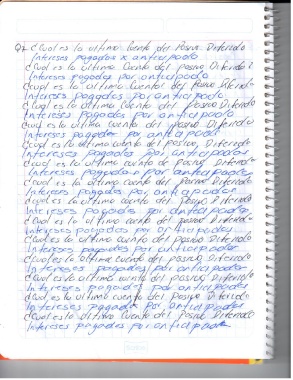 ¿Cual es la ultima Cuenta del Pasivo Diferido
Intereses pagados x anticipado
¿Cual es la ultima Cuenta del Pasivo Diferido?
Intereses pagados por anticipado
¿Cual es la ultima Cuenta del Pasivo Diferido
Intereses pagados por anticipado
¿Cual es la ultima Cuenta del pasivo Diferido
Intereses Pagados por anticipado
¿Cual es la ultima cuenta del Pasivo Diferido
Intereses pagados por anticipado
¿Cual es la ultima cuenta del Pasivo, Diferido
Intereses Pagados por anticipado
¿Cual es la ultima cuenta de Pasivo Diferido
Intereses pagados por anticipado
¿Cual es la ultima cuenta del pasivo Diferido
Intereses pagados por anticipado
¿Cual es la ultima cuenta del pasivo Diferido
Intereses Pagados por anticipado
¿Cual es la ultima cuenta del pasivo Diferido
Intereses pagados por anticipados
¿Cual es la ultima cuenta del pasivo Diferido
Intereses pagados por anticipado
¿Cual es la ultima cuenta del pasivo Diferido
Intereses pagados por anticipado
¿Cual es la ultimo cuenta del pasivo Diferido
Intereses pagados por anticipados
¿Cual es la ultimo cuenta del Pasivo Diferido
Intereses pagados por anticipados
¿Cual es la ultimo cuenta del pasivo Diferido
Intereses pagados por anticipado